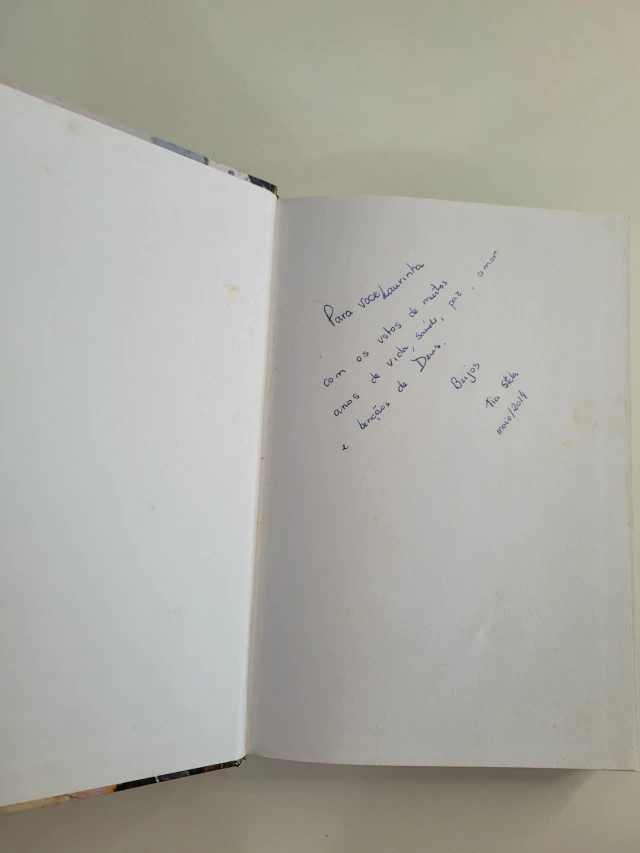 Para você Laurinha
com os votos de muitos
anos de vida, saúde, paz, amor
e bençãos de Deus.
Beijos
Tia Stela
maio/2014